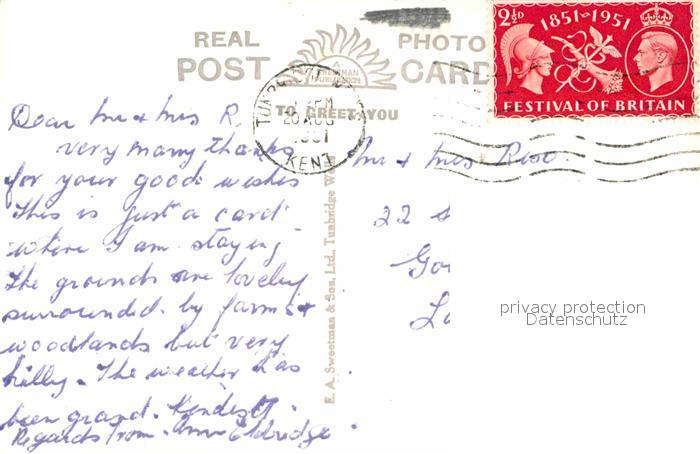 REAL PHOTO
POST CARD
A SWEETMAN PUBLICATION
TO GREET YOU
2½D
1851-1951
FESTIVAL OF BRITAIN
AUG
KENT
Dear Mr & Mrs R.
very many thanks
for your good wishes
This is just a card
where I am staying
The grounds are lovely
surrounded by farms &
woodlands but very
hilly. The weather has
been grand. Kindest
Regards from
Mr & Mrs
22
E. A. Sweetman & Son, Ltd., Tunbridge We
privacy protection
Datenschutz